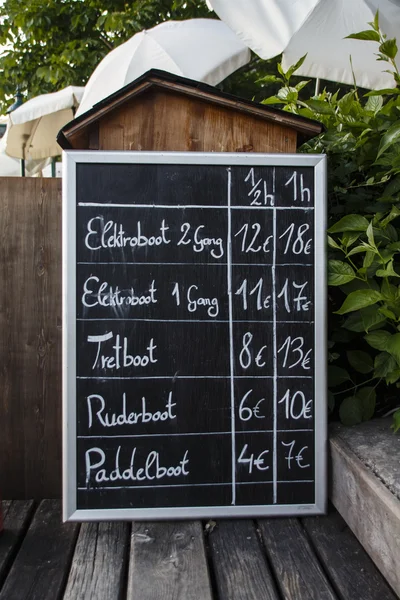 ½h 1h
Elektroboot 2 Gang 12€ 18€
Elektroboot 1 Gang 11€ 17€
Tretboot 8€ 13€
Ruderboot 6€ 10€
Paddelboot 4€ 7€